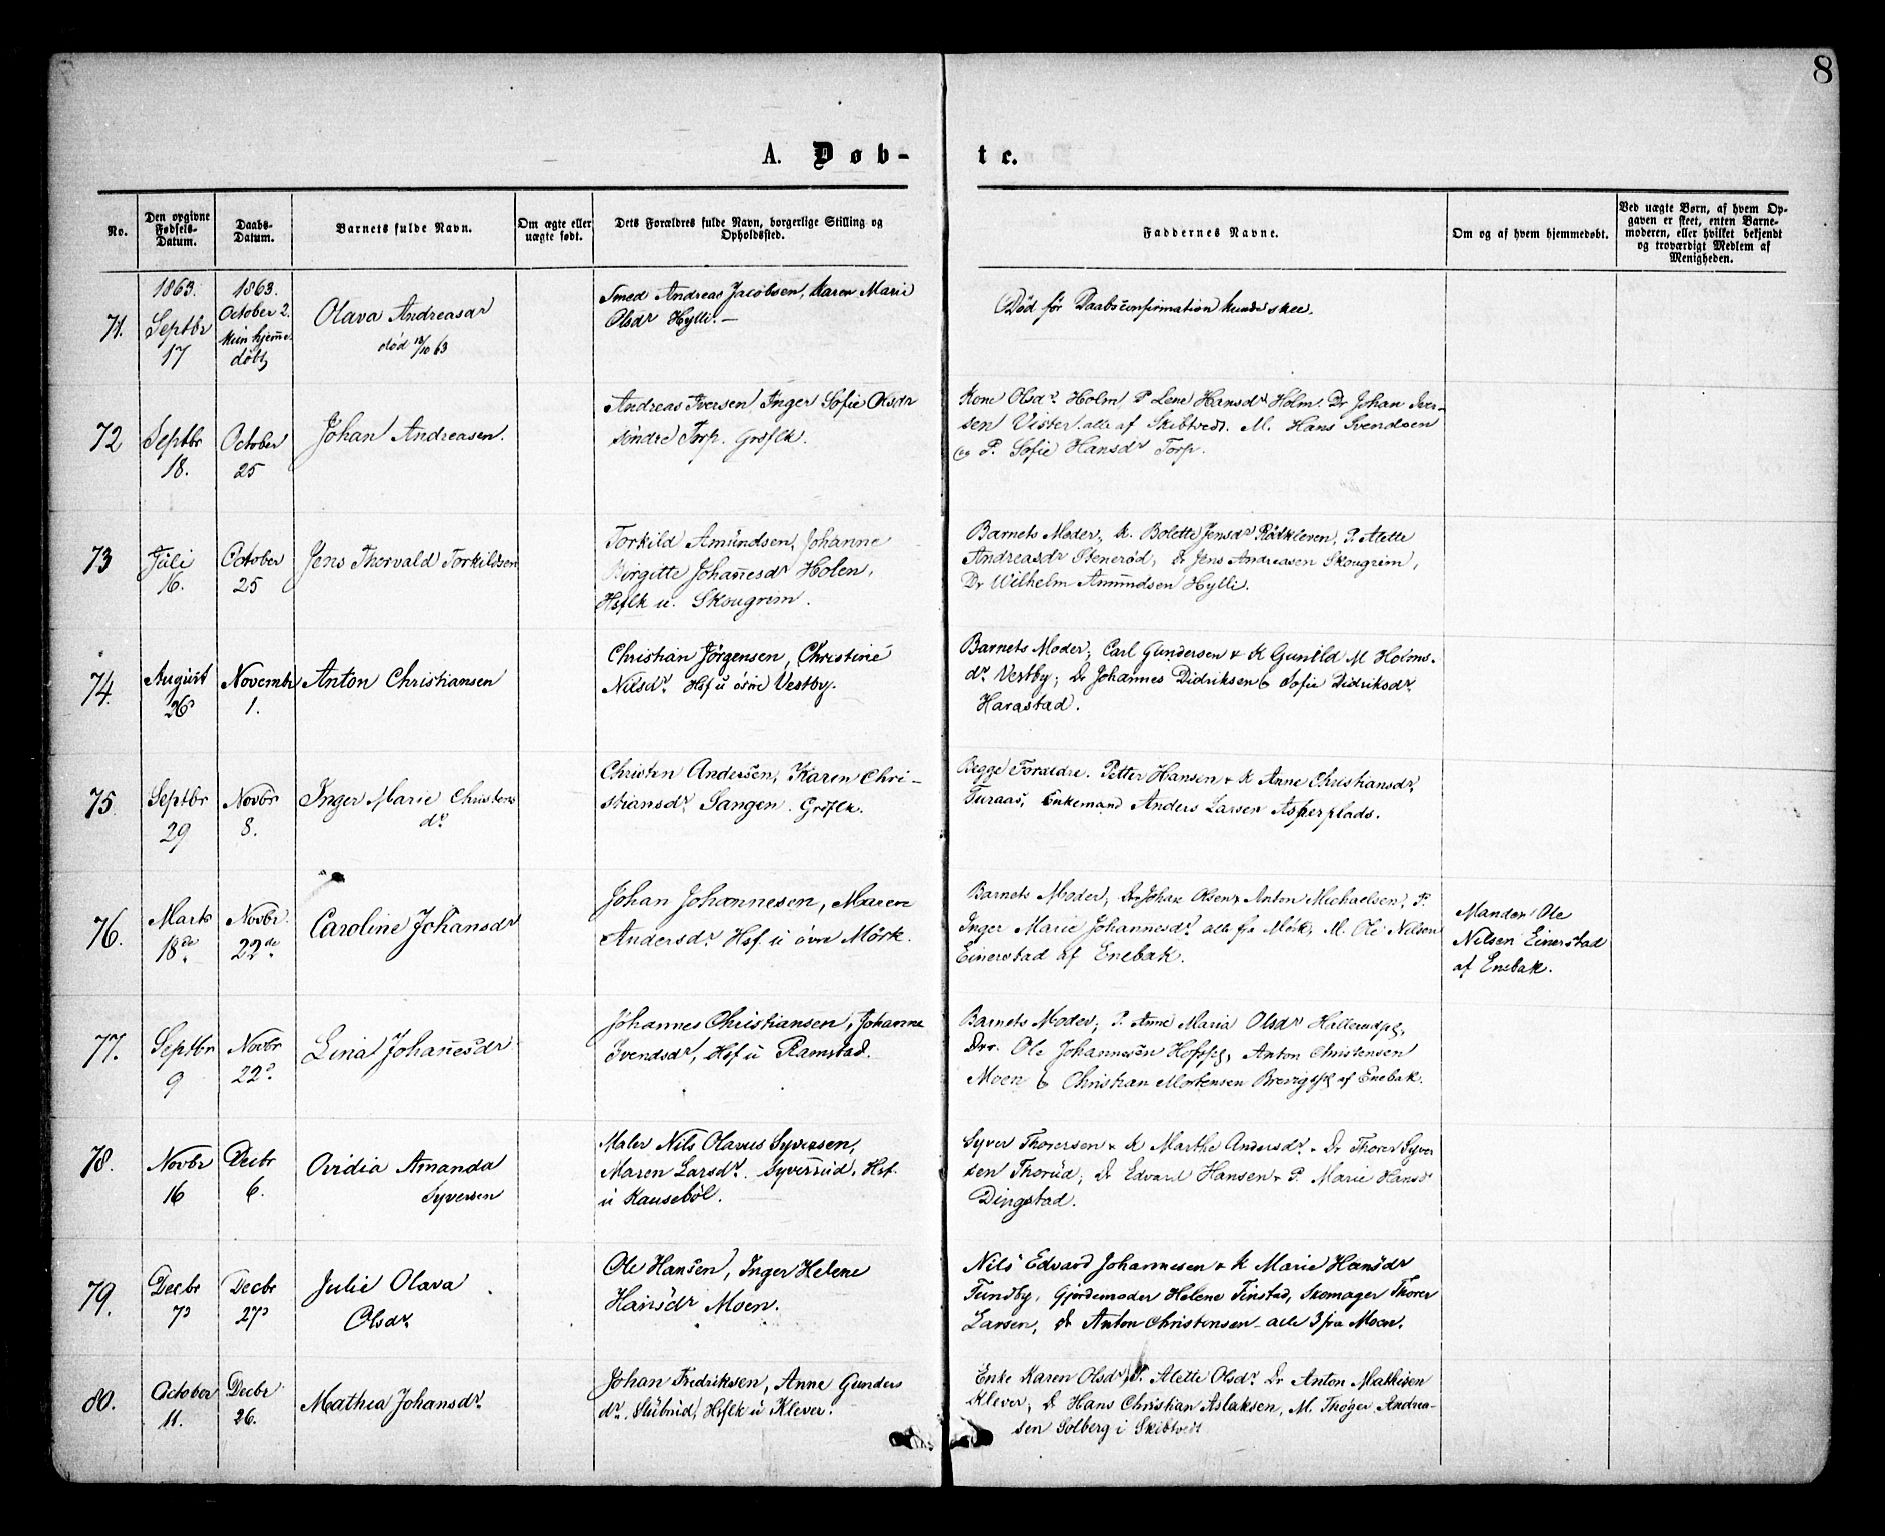 8
A. Døb-
te.
No.
Den opgivne Fødsels-Datum.
Daabs-Datum.
Barnets fulde Navn.
Om ægte eller uægte født.
Dets Forældres fulde Navn, borgerlige Stilling og Opholdssted.
Faddernes Navne.
Om og af hvem hjemmedøbt.
Ved uægte Børn, af hvem Opgaven er skeet, enten Barnemoderen, eller hvilket bekjendt og troværdigt Medlem af Menigheden.
71.
1863.
Septbr
17
1863.
October 2.
kun hjem̄e
døbt
Olava Andreasdr
død 13/10 63
Smed Andreas Jacobsen, Karen Marie
Olsdr Hylli. —
Død før Daabsconfirmation kunde skee.
72
Septbr
18.
October
25
Johan Andreasen.
Andreas Iversen, Inger Sofie Olsdr
söndre Torp. Grdflk.
Kone Olsdr. Holm, P. Lene Hansdr Holm. Dr Johan Iver-
sen Vister. alle af Skibtvedt. M. Hans Svendsen
og P. Sofie Hansdr Torp.
73
Juli
16.
October
25
Jens Thorvald Torkildsen
Torkild Amundsen, Johanne
Birgitte Johan̄esdr Holen,
Hsflk u. Skougrim.
Barnets Moder, K. Bolette Jensdr Rödkleven, P. Alette
Andreasdr Stenerød, Dr Jens Andreasen Skougrim,
Dr Wilhelm Amundsen Hylli.
74.
August
26
Novembr
1.
Anton Christiansen
Christian Jörgensen, Christine
Nilsdr. Hsf u østre Vestby.
Barnets Moder, Carl Gundersen & K Gunild M Holms-
dr Vestby; Dr Johannes Didriksen & Sofie Didriksdr.
Harastad.
75.
Septbr
29
Novbr
8.
Inger Marie Christens
dr.
Christen Andersen, Karen Chri-
stiansdr Sangen. Grdflk.
Begge Forældre. Petter Hansen & K Anne Christiansdr.
Turaas, Enkemand Anders Larsen Asperplads.
76.
Marts
18de.
Novbr.
22de
Caroline Johansdr
Johan Johannesen, Maren
Andersdr. Hsf. u övre Mörk.
Barnets Moder, Dr Johan Olsen & Anton Michaelsen, P.
Inger Marie Johannesdr. alle fra Mörk, M. Ole Nilsen
Einerstad af Enebak.
Manden Ole
Nilsen Einerstad
af Enebak.
77.
Septbr
9
Novbr
22d.
Lina Johan̄esdr
Johannes Christiansen, Johanne
Svendsdr, Hsf u Ramstad.
Barnets Moder, P. Anne Maria Olsdr
Drr. Ole Johannesen Anton Christensen
Moen & Christian Mortensen af Enebak.
78.
Novbr
16
Decbr
6.
Ovidia Amanda
Syversen
Maler Nils Olavus Syversen,
Maren Larsdr. Syversrud, Hsf.
u Kauseböl.
Syver Thorersen & K Marthe Andersdr. Dr Thorer Syver
sen Thorud, Dr Edvard Hansen & P. Marie Hansdr
Dingstad.
79.
Decbr
7
Decbr
27
Julie Olava
Olsdr.
Ole Hansen, Inger Helene
Hansdr Moen.
Nils Edvard Johannesen & K Marie Hansdr
Tundby, Gjordemoder Helene Finstad, Skomager Thorer
Larsen, Dr Anton Christensen alle 3 fra Moen.
80.
October
11.
Decbr
26.
Mathea Johansdr.
Johan Fredriksen, Anne Gunders
dr. Stubrud, Hsflk u Klever.
Enke Karen Olsdr, P. Alette Olsdr. Dr Anton Mathisen
Klever, Dr Hans Christian Aslaksen, M. Thoger Andrea-
sen Solberg i Skibtvedt